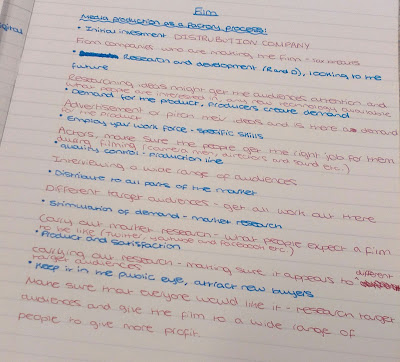 Film
Media production as a factory process!
• Initial investment DISTRUBUTION COMPANY
Film companies who are making the film - tax breaks
• Research and development (R and D), looking to the
future
Researching ideas might get the audiences attention and
what people are interested in any new technology available
• Demand for the product, producers create demand
Advertisement or pitch their ideas and is there a demand
for the product
• Employ your work force - specific skills
Actors, make sure the people get the right job for them
during filming (camera men, directors and sound etc.)
• Quality control - production line
Interviewing a wide range of audiences
• Distribute to all parts of the market
Different target audiences - get all work out there
• Stimulation of demand - market research
Carry out market research - what people expect a film
to be like (Twitter, Youtube and Facebook etc.)
• Product and satisfaction
carrying out research - making sure it appears to different
target audiences
• Keep it in the public eye, attract new buyers
Make sure that everyone would like it - research target
audiences and give the film to a wide range of
people to give more profit.